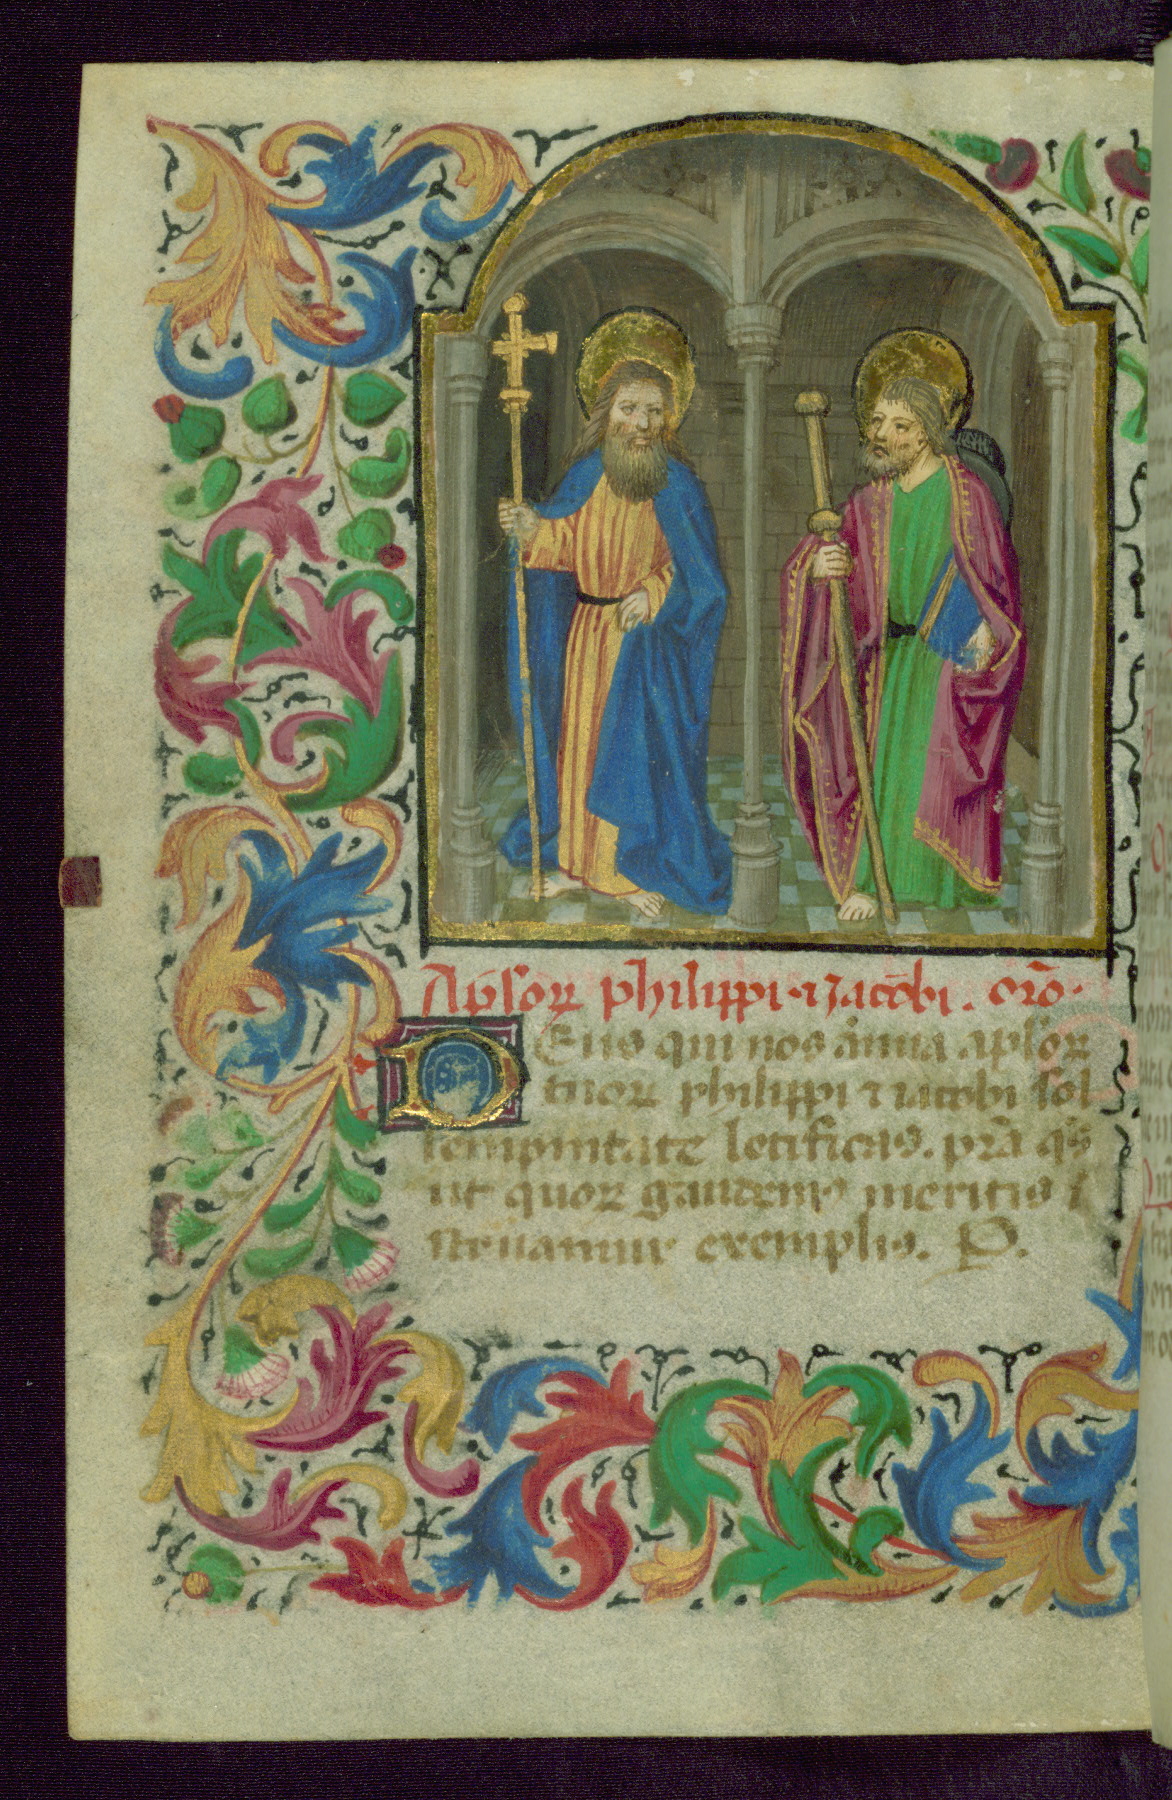 Apl̅oꝝ philippi ⁊ Jacobi. or̅o.
Deus qui nos ānua aploꝝ
tuoꝝ philippi ⁊ iacobi sol
lempnitate letificas. pr̄a qs̄
ut quoꝝ gaudemꝰ meritis ī
struamur exemplis. P.